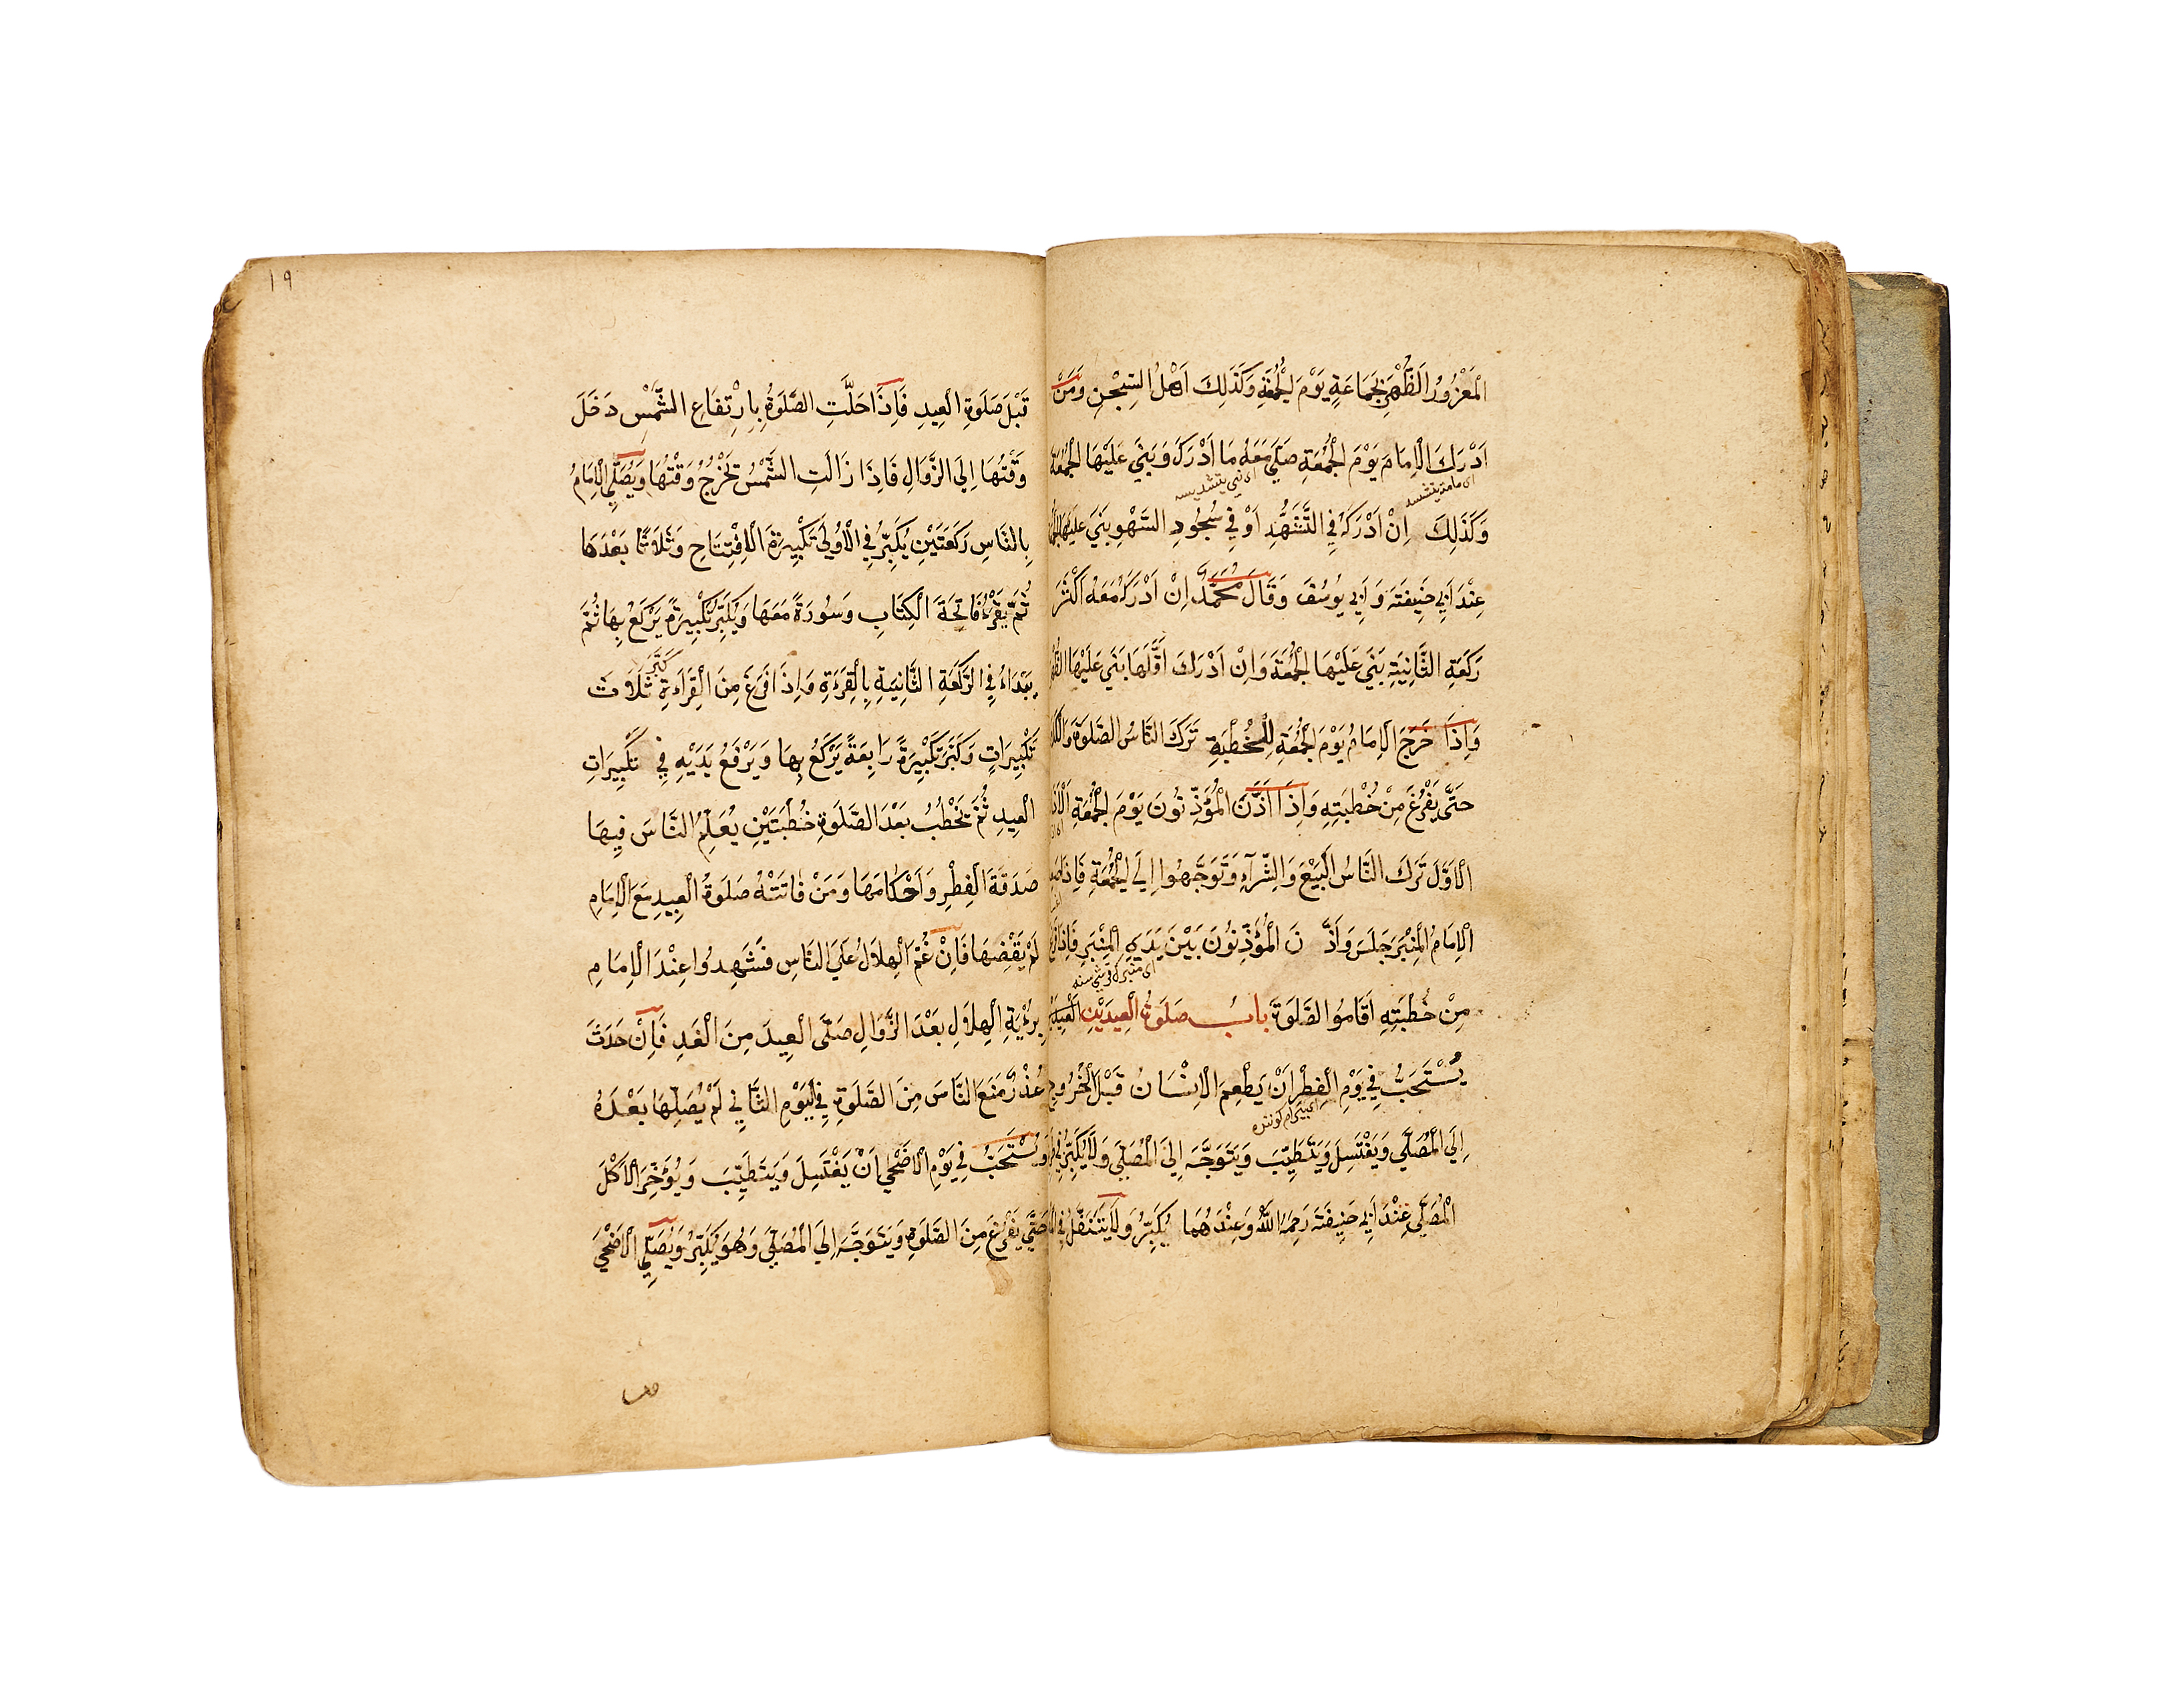 الْمَعْزُورُ الظُّهْرَ بِجَمَاعَةٍ يَوْمَ الْجُمُعَةِ وَكَذَلِكَ اَهْلُ السِّجْنِ وَمَنْ
اَدْرَكَ الْاِمَامَ يَوْمَ الْجُمُعَةِ صَلَّى مَعَهُ مَا اَدْرَكَ وَبَنَى عَلَيْهَا الْجُمُعَةَ
وَكَذَلِكَ اِنْ اَدْرَكَهُ فِي التَّشَهُّدِ اَوْ فِي سُجُودِ السَّهْوِ بَنَى عَلَيْهَا
عِنْدَ اَبِي حَنِيفَةَ وَ اَبِي يُوسُفَ وَقَالَ مُحَمَّدٌ اِنْ اَدْرَكَ مَعَهُ اَكْثَرَ
رَكْعَةِ الثَّانِيَةِ بَنَى عَلَيْهَا الْجُمُعَةَ وَاِنْ اَدْرَكَ اَقَلَّهَا بَنَى عَلَيْهَا الظُّهْرَ
وَاِذَا خَرَجَ الْاِمَامُ يَوْمَ الْجُمُعَةِ لِلْخُطْبَةِ تَرَكَ النَّاسُ الصَّلَوةَ وَالْكَلَا
حَتَّى يَفْرُغَ مِنْ خُطْبَتِهِ وَاِذَا اَذَّنَ الْمُؤَذِّنُونَ يَوْمَ الْجُمُعَةِ
الْاَوَّلَ تَرَكَ النَّاسُ الْبَيْعَ وَالشِّرَآءِ وَتَوَجَّهُوا اِلَى الْجُمُعَةِ فَاِذَا
الْاِمَامُ الْمِنْبَرَ جَلَسَ وَاَذَّنَ الْمُؤَذِّنُونَ بَيْنَ يَدَيِ الْمِنْبَرِ فَاِذَا
مِنْ خُطْبَتِهِ اَقَامُوا الصَّلَوةَ بابُ صَلَوةِ الْعِيدَيْنِ
يُسْتَحَبُّ فِي يَوْمِ الْفِطْرِ اَنْ يَطْعِمَ الْاِنْسَانُ قَبْلَ الْخُرُوجِ
اِلَى الْمُصَلَّى وَيَغْتَسِلَ وَيَتَطَيِّبَ وَيَتَوَجَّهَ اِلَى الْمُصَلَّى وَلَا يُكَبِّرُ فِي
الْمُصَلَّى عِنْدَ اَبِي حَنِيفَةَ رَحِمَهُ اللّٰهُ وَعِنْدَهُمَا يُكَبِّرُ وَلَا يَتَنَفَّلُ فِي
١٩
قَبْلَ صَلَوةِ الْعِيدِ فَاِذَا حَلَّتِ الصَّلَوةُ بِارْتِفَاعِ الشَّمْسِ دَخَلَ
وَقْتُهَا اِلَى الزَّوَالِ فَاِذَا زَالَتِ الشَّمْسُ تَخْرُجُ وَقْتُهَا وَيُصَلِّى الْاِمَامُ
بِالنَّاسِ رَكْعَتَيْنِ يُكَبِّرُ فِي الْاُولَى تَكْبِيرَةَ الْاِفْتِتَاحِ وَثَلَاثًا بَعْدَهَا
ثُمَّ يَقْرَءُ فَاتِحَةَ الْكِتَابِ وَسُورَةً مَعَهَا وَيُكَبِّرُ تَكْبِيرَةً يَرْكَعُ بِهَا ثُمَّ
يَبْتَدَاءُ فِي الرَّكْعَةِ الثَّانِيَةِ بِالْقِرَءَةِ وَاِذَا فَرَغَ مِنَ الْقِرَاءَةِ كَبَّرَ ثَلَاثَ
تَكْبِيرَاتٍ وَكَبَّرَ تَكْبِيرَةً رَابِعَةً يَرْكَعُ بِهَا وَيَرْفَعُ يَدَيْهِ فِي تَكْبِيرَاتِ
الْعِيدِ ثُمَّ يَخْطُبُ بَعْدَ الصَّلَوةِ خُطْبَتَيْنِ يُعَلِّمُ النَّاسَ فِيهَا
صَدَقَةَ الْفِطْرِ وَاَحْكَامَهَا وَمَنْ فَاتَتْهُ صَلَوةُ الْعِيدِ مَعَ الْاِمَامِ
لَمْ يَقْضِهَا فَاِنْ غُمَّ الْهِلَالُ عَلَى النَّاسِ فَشَهِدُوا عِنْدَ الْاِمَامِ
بِرُءْيَةِ الْهِلَالِ بَعْدَ الزَّوَالِ صَلَّى الْعِيدَ مِنَ الْغَدِ فَاِنْ حَدَثَ
عُذْرٌ مَنَعَ النَّاسَ مِنَ الصَّلَوةِ فِي الْيَوْمِ الثَّانِي لَمْ يُصَلِّهَا بَعْدَهُ
وَيُسْتَحَبُّ فِي يَوْمِ الْاَضْحَى اَنْ يَغْتَسِلَ وَيَتَطَيَّبَ وَيُؤَخِّرَ الْاَكْلَ
حَتَّى يَفْرُغَ مِنَ الصَّلَوةِ وَيَتَوَجَّهَ اِلَى الْمُصَلَّى وَهُوَ يُكَبِّرُ وَيُصَلِّى الْاَضْحَى